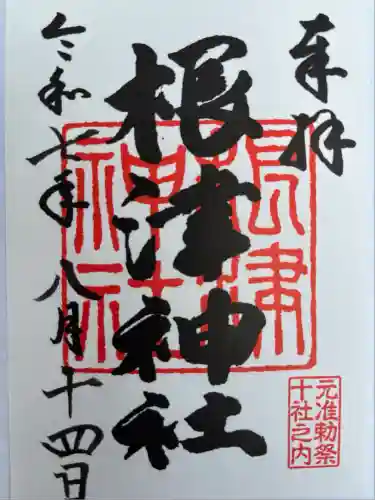 奉拝
根津神社
根津神社
元准勅祭
十社之内
令和七年八月十四日